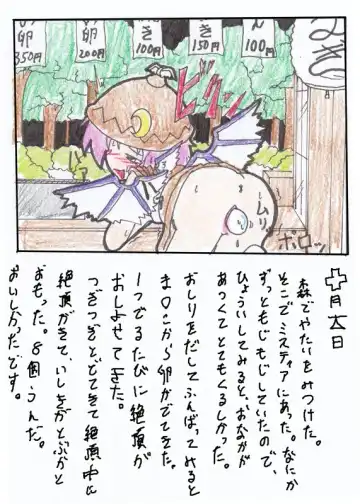 卵
350円
卵
200円
き
100円
ぎ
150円
ん
100円
つめうなぎ
ビクッ
ビクッ
ムリ
ポロッ
十月六日
森でやたいをみつけた。
そこでミスティアにあった。なにか
ずっともじもじしていたので、
ひょういしてみると、おなかが
あつくてとてもくるしかった。
おしりをだしてふんばってみると
ま〇こから卵がでてきた。
1つでるたびに絶頂が
おしよせてきた。
つぎつぎとでてきて絶頂中に
絶頂がきて、いしきがとぶかと
おもった。8個うんだ。
おいしかったです。